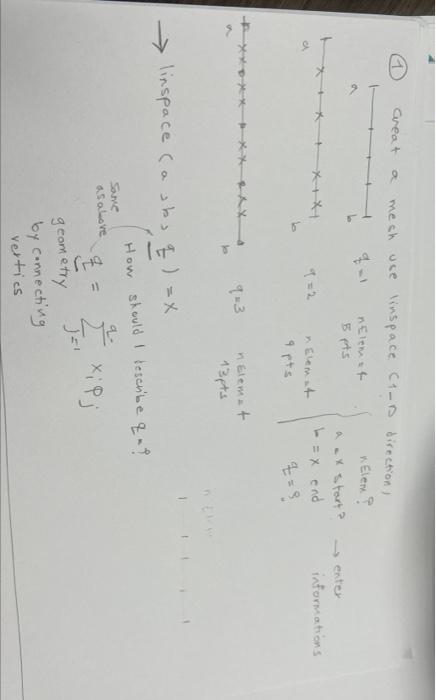 ① Creat a mesh use linspace (1-D direction)
a b q=1 nElem=4
5 pts
nElem?
a = x start? → enter
b = x end informations
q = ?
a b q=2 nElem=4
9 pts
a b q=3 nElem=4
13 pts
→ linspace (a, b, q) = x
How should I describe q=?
same
as above q = Σ x_j φ_j
q
j=1
geometry
by connecting
vertics